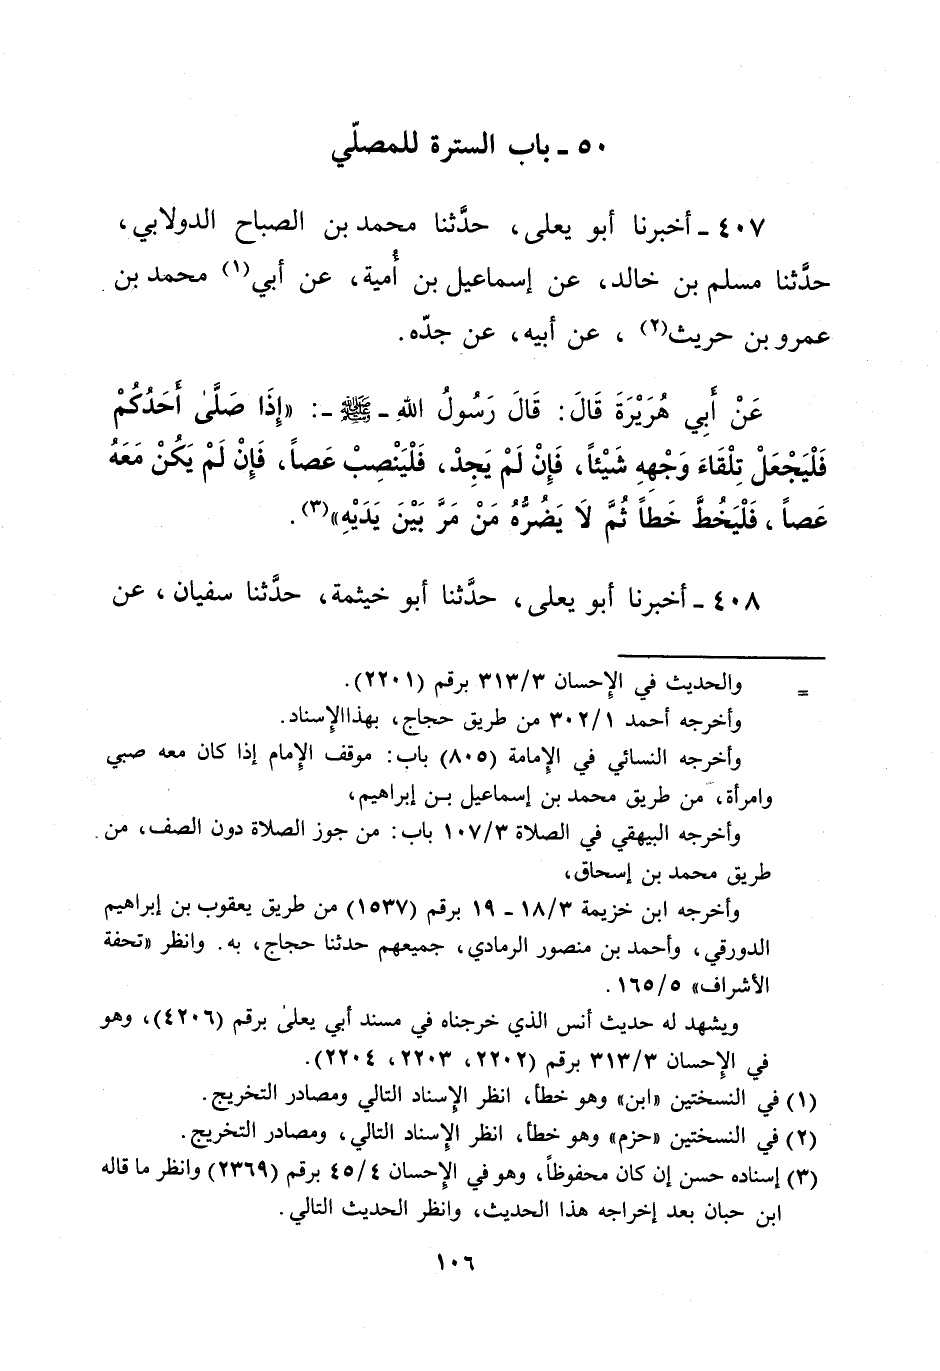 ٥٠ ـ باب السترة للمصلّي
٤٠٧ ـ أخبرنا أبو يعلى، حدَّثنا محمد بن الصباح الدولابي،
حدَّثنا مسلم بن خالد، عن إسماعيل بن أُمية، عن أبي(١) محمد بن
عمرو بن حريث(٢) ، عن أبيه، عن جدّه.
عَنْ أَبِي هُرَيْرَةَ قَالَ: قَالَ رَسُولُ اللهِ ـ ﷺ ـ: «إِذَا صَلَّىٰ أَحَدُكُمْ
فَلْيَجْعَلْ تِلْقَاءَ وَجْهِهِ شَيْئاً، فَإِنْ لَمْ يَجِدْ، فَلْيَنْصِبْ عَصاً، فَإِنْ لَمْ يَكُنْ مَعَهُ
عَصاً، فَلْيَخُطَّ خَطاً ثُمَّ لَا يَضُرُّهُ مَنْ مَرَّ بَيْنَ يَدَيْهِ»(٣).
٤٠٨ ـ أخبرنا أبو يعلى، حدَّثنا أبو خيثمة، حدَّثنا سفيان، عن
= والحديث في الإحسان ٣١٣/٣ برقم (٢٢٠١).
وأخرجه أحمد ٣٠٢/١ من طريق حجاج، بهذا الإسناد.
وأخرجه النسائي في الإمامة (٨٠٥) باب: موقف الإمام إذا كان معه صبي
وامرأة، من طريق محمد بن إسماعيل بـن إبراهيم،
وأخرجه البيهقي في الصلاة ١٠٧/٣ باب: من جوز الصلاة دون الصف، من
طريق محمد بن إسحاق،
وأخرجه ابن خزيمة ١٨/٣ ـ ١٩ برقم (١٥٣٧) من طريق يعقوب بن إبراهيم
الدورقي، وأحمد بن منصور الرمادي، جميعهم حدثنا حجاج، به. وانظر «تحفة
الأشراف» ١٦٥/٥.
ويشهد له حديث أنس الذي خرجناه في مسند أبي يعلىٰ برقم (٤٢٠٦)، وهو
في الإحسان ٣١٣/٣ برقم (٢٢٠٢، ٢٢٠٣، ٢٢٠٤).
(١) في النسختين «ابن» وهو خطأ، انظر الإسناد التالي ومصادر التخريج.
(٢) في النسختين «حزم» وهو خطأ، انظر الإسناد التالي، ومصادر التخريج.
(٣) إسناده حسن إن كان محفوظاً، وهو في الإحسان ٤٥/٤ برقم (٢٣٦٩) وانظر ما قاله
ابن حبان بعد إخراجه هذا الحديث، وانظر الحديث التالي.
١٠٦